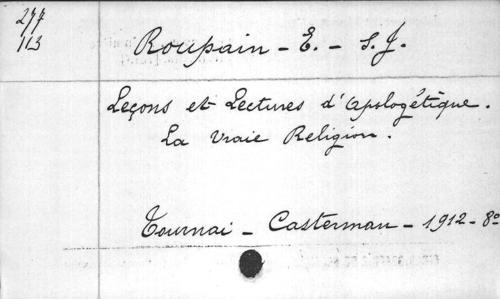 277
113
Roupain - E. - S. J.
Leçons et Lectures d'Apologétique.
La vraie Religion.
Tournai - Casterman - 1912 - 8º